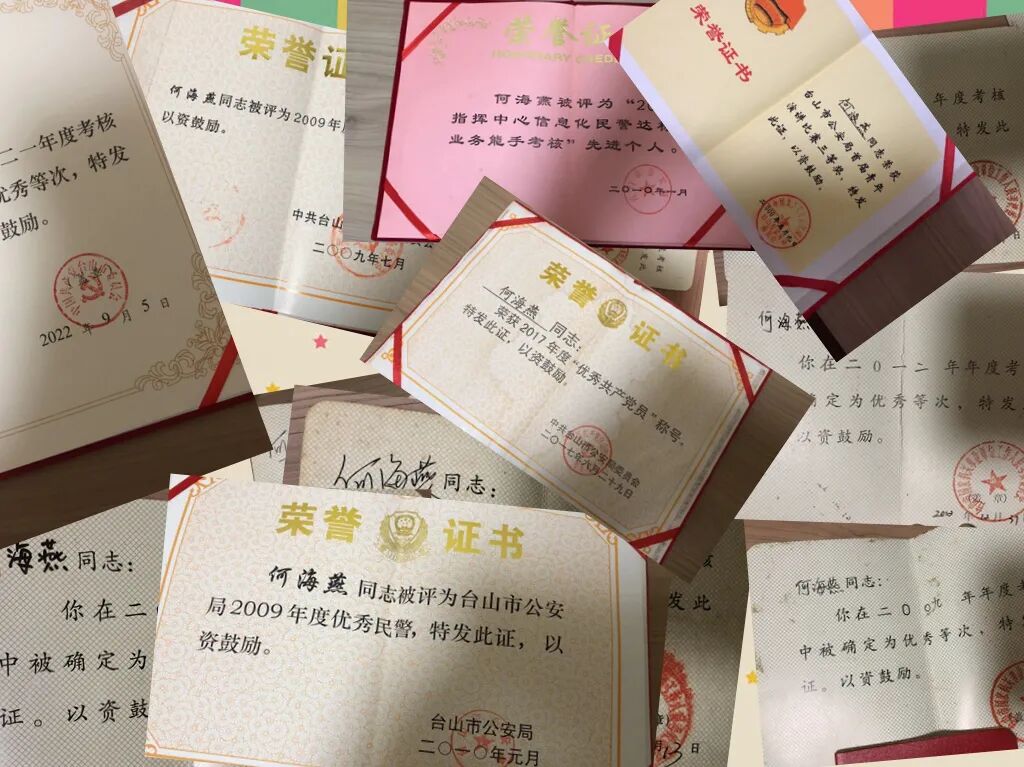 二一年度考核
优秀等次，特发
鼓励。
2022 年 9 月 5 日
荣誉证
何海燕同志被评为2009年
以资鼓励。
中共台山
二〇〇九年七月
荣誉证
HONORARY CRED
何海燕被评为“20
指挥中心信息化民警达标
业务能手考核”先进个人。
二〇一〇年一月
荣誉证书
何海燕同志荣获
台山市公安局首届青年
演讲比赛三等奖，特发
此证，以资鼓励。
年度考核
特发此
荣誉证书
何海燕 同志：
荣获2017年度“优秀共产党员”称号，
特发此证，以资鼓励。
中共台山市公安局委员会
二〇一七年六月二十九日
何海燕
你在二〇一二年年度考
确定为优秀等次，特发
以资鼓励。
何海燕同志：
海燕同志：
你在二
中被确定为
证。以资鼓
荣誉证书
何海燕同志被评为台山市公安
局2009年度优秀民警，特发此证，以
资鼓励。
台山市公安局
二〇一〇年元月
发此
13日
何海燕同志：
你在二00九年年度考
中被确定为优秀等次，特
证。以资鼓励。